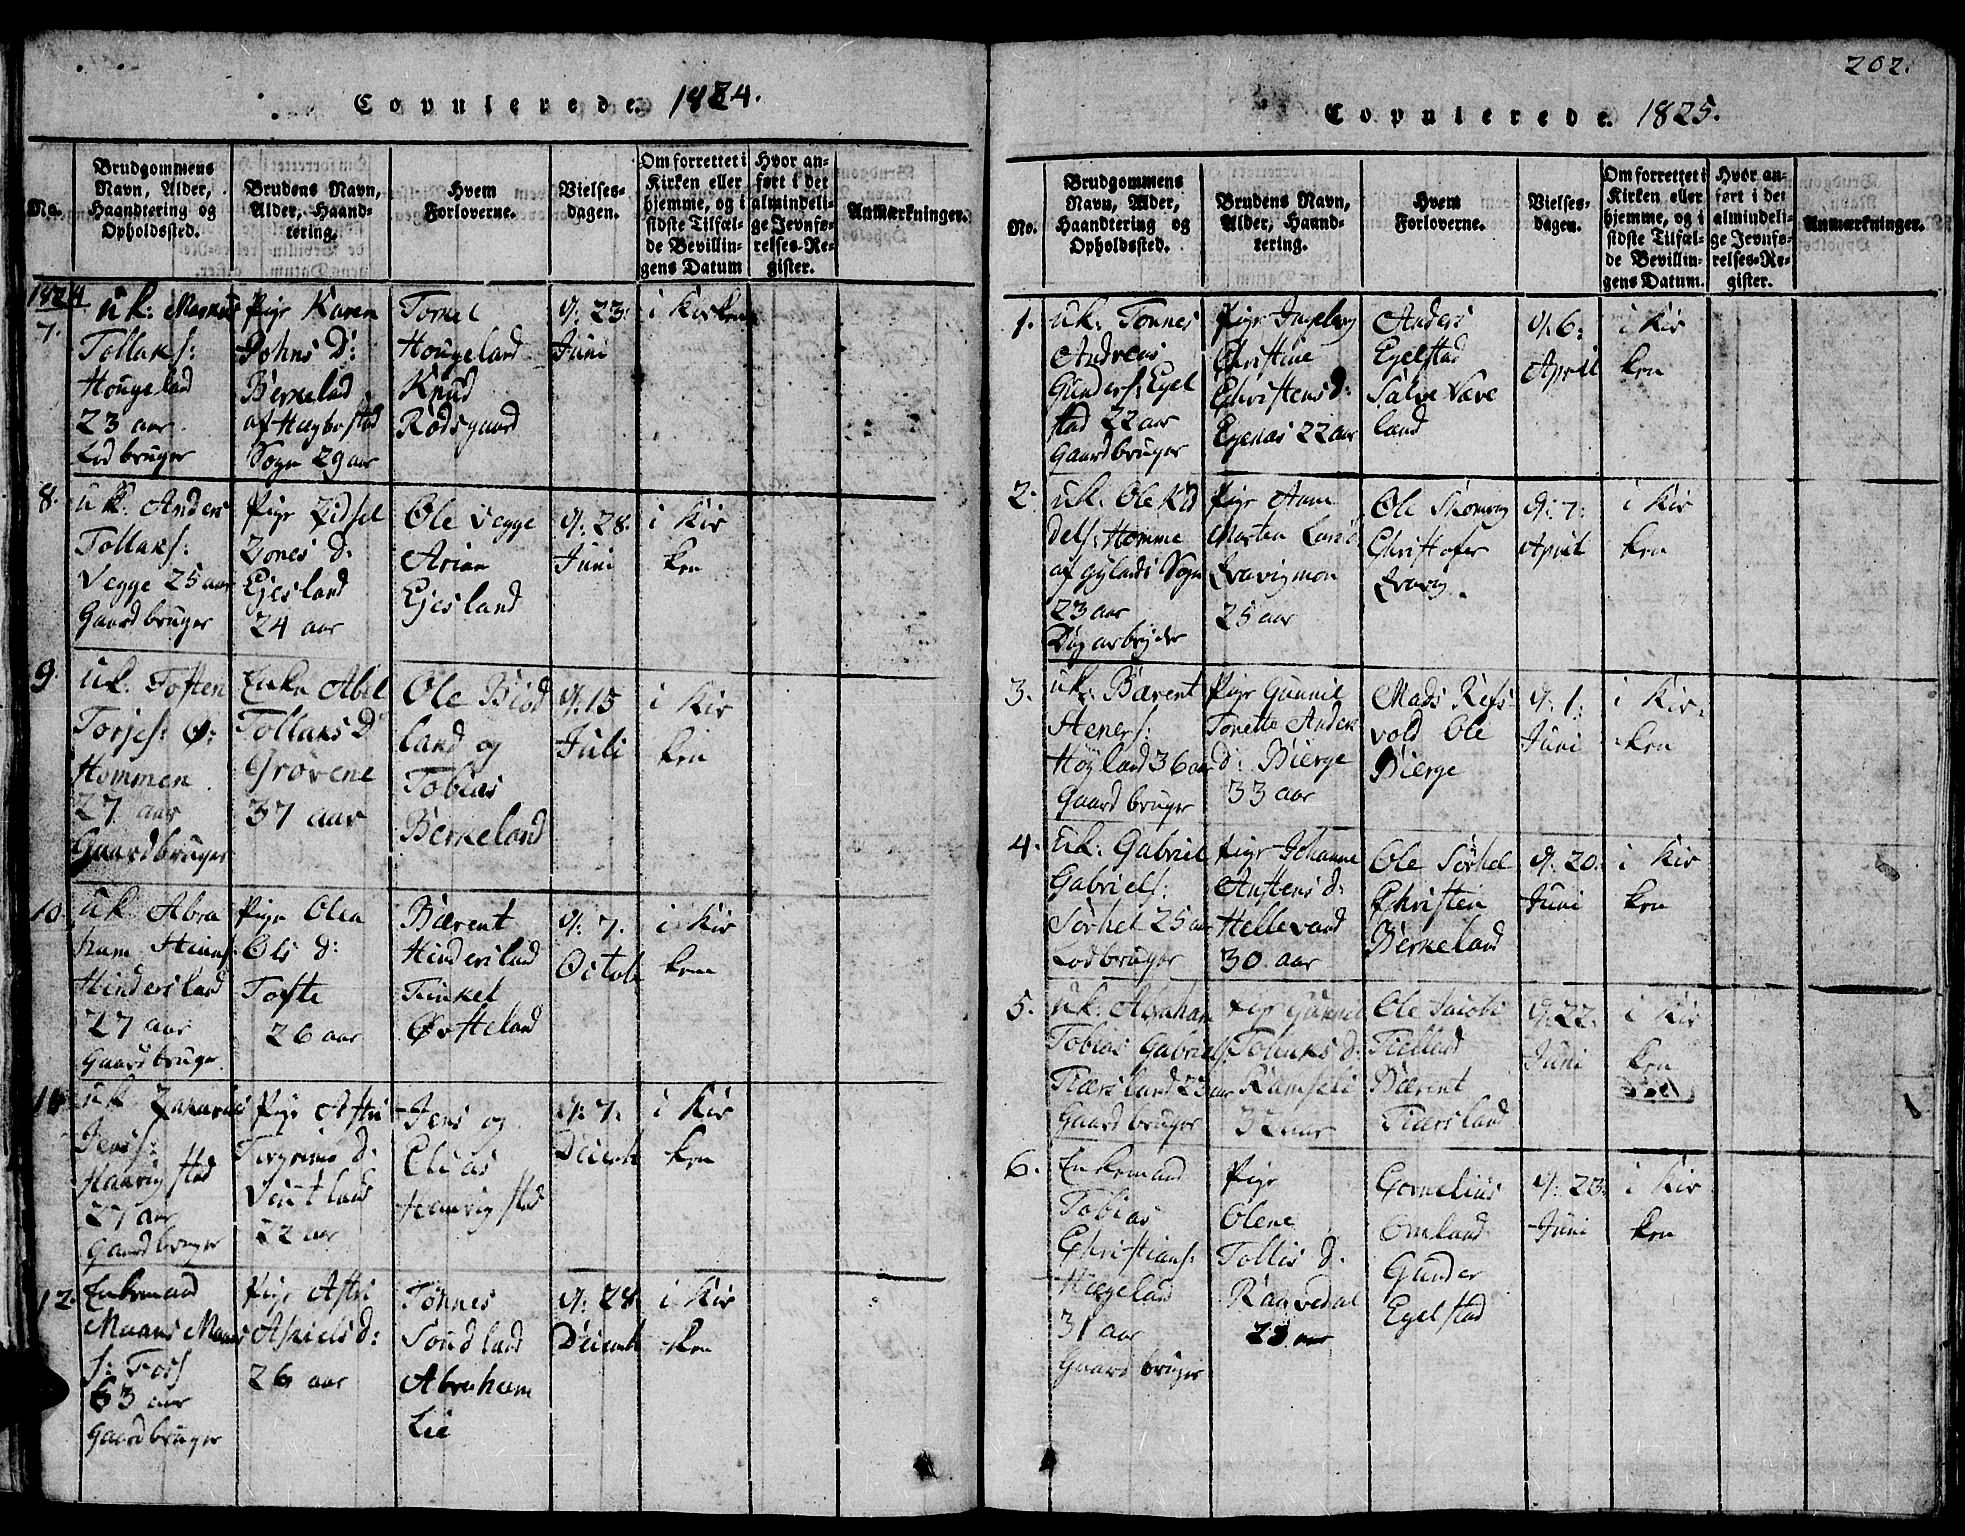 202.
Copulerede. 1824.
No.
Brudgommens
Navn, Alder,
Haandtering og
Opholdssted.
Brudens Navn,
Alder, Haand-
tering.
Hvem
Forloverne.
Vielses-
dagen.
Om forrettet i
Kirken eller
hjemme, og i
sidste Tilfæl-
de Bevillin-
gens Datum
Hvor an-
ført i det
almindeli-
ge Jevnfø-
relses-Re-
gister.
Anmærkninger.
1824
7.
uk: Markus
Tollaks:
Hougeland
23 aar
Lodbruger
Pige Karen
Johns D:
Berkelad
af Hægbostad
Sogn 29 aar
Torkel
Hougeland
Knud
Rødsgaard
d: 23:
Juni
i Kirken
8.
uk. Anders
Tollaks:
Vegge 25 aar
Gaardbruger
Pige Zidsel
Zones D:
Ejesland
24 aar
Ole Vegge
Arian
Ejesland
d: 28:
Juni
i Kir
ken
9.
uk. Tosten
Torjes: Ø:
Hommen
27 aar
Gaardbruger
Enke Abel
Tollaks D
Grøvene
37 aar
Ole Biød
land og
Tobias
Berkeland
d: 15
Juli
i Kir
ken
10.
uk. Abra
ham Heins:
Hindersland
27 aar
Gaardbruger
Pige Olea
Ols D:
Tofte
26 aar
Bærent
Hindersland
Tinkel
Øvsteland
d: 7.
Octob
i Kir
ken
11
uk Zakarias
Jens:
Haavigstad
27 aar
Gaardbruger
Pige Astri
Torgrims D.
22 aar
Jens og
Elias
Haavigstad
d: 7.
Decemb
i Kir
ken
12.
Enkemand
Maans Maans
s: Fors
63 aar
Gaardbruger
Pige Astri
Askiels D:
26 aar
Tønnes
Søndland
Abraham
Lie
d: 28
Decemb
i Kir
ken
Copulerede. 1825.
No.
Brudgommens
Navn, Alder,
Haandtering og
Opholdssted.
Brudens Navn,
Alder, Haand-
tering.
Hvem
Forloverne.
Vielses-
dagen.
Om forrettet i
Kirken eller
hjemme, og i
sidste Tilfæl-
de Bevillin-
gens Datum.
Hvor an-
ført i det
almindeli-
ge Jevnfø-
relses-Re-
gister.
Anmærkninger.
1.
uk. Tønnes
Andreas
Gunders: Egel
stad 22 aar
Gaardbruger
Pige Ingeborg
Christine
Christens D:
Egenas 22 aar
Anders
Egelstad
Salve Være
land
d. 6:
April
i Kir
ken
2.
uk. Ole Kid
dels: Homme
af Gylands Sogn
23 aar
Dagarbejder
Pige Anne
25 aar
Ole
Christofer
d: 7:
April
i Kir
ken
3.
uk: Bærent
Steners:
Høyland 36 aar
Gaardbruger
Pige Gunnil
Tonette Anders
D: Bierge
33 aar
Mads Refs
vold Ole
Bierge
d: 1:
Juni
i Kir
ken
4.
uk: Gabriel
Gabriels:
Sørhel 25 aar
Lodbruger
Pige Johanne
Anstens D:
Hellevand
30 aar
Ole Sørhel
Christen
Berkeland
d: 20:
Juni
i Kir
ken
5.
uk. Abraham
Tobias Gabriels:
Fiærsland 23 aar
Gaardbruger
Pige Gunnil
D:
32 aar
Ole Jacobs
Fielland
Bærent
Fiærsland
d: 22.
Juni
i Kir
ken
6.
Enkemand
Tobias
Christians:
Hægeland
31 aar
Gaardbruger
Pige
Olene
Tollis D.
Raavedal
23 aar
Cornelius
Omland
Gunder
Egelstad
d: 23.
Juni
i Kir
ken